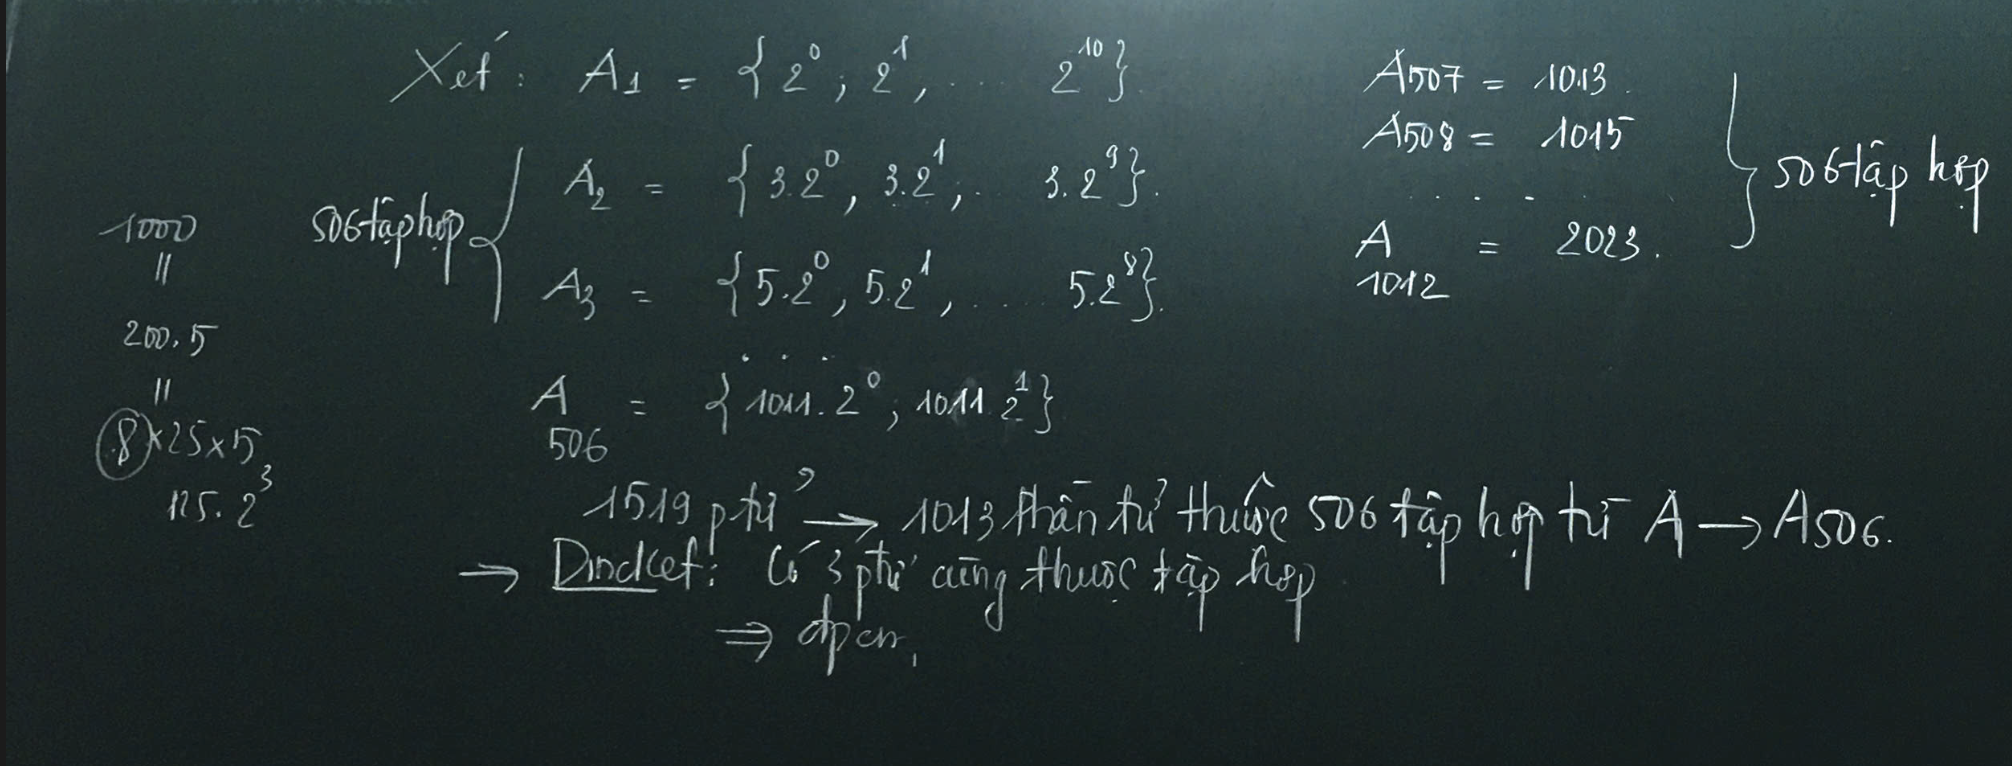 Xét: A1 = { 2^0; 2^1, ... 2^10}.
506 tập hợp { A2 = { 3.2^0, 3.2^1, .. 3.2^9}.
A3 = { 5.2^0, 5.2^1, ... 5.2^8}.
. . .
A506 = { 1011.2^0, 1011 2^1}
1000
=
200.5
=
8×25×5
125.2^3
A507 = 1013.
A508 = 1015
. . . .
A1012 = 2023.
} 506 tập hợp
1519 ptử → 1013 phần tử thuộc 506 tập hợp từ A → A506.
→ Diricket: Có 3 ptử cùng thuộc tập hợp
⇒ đpcm.